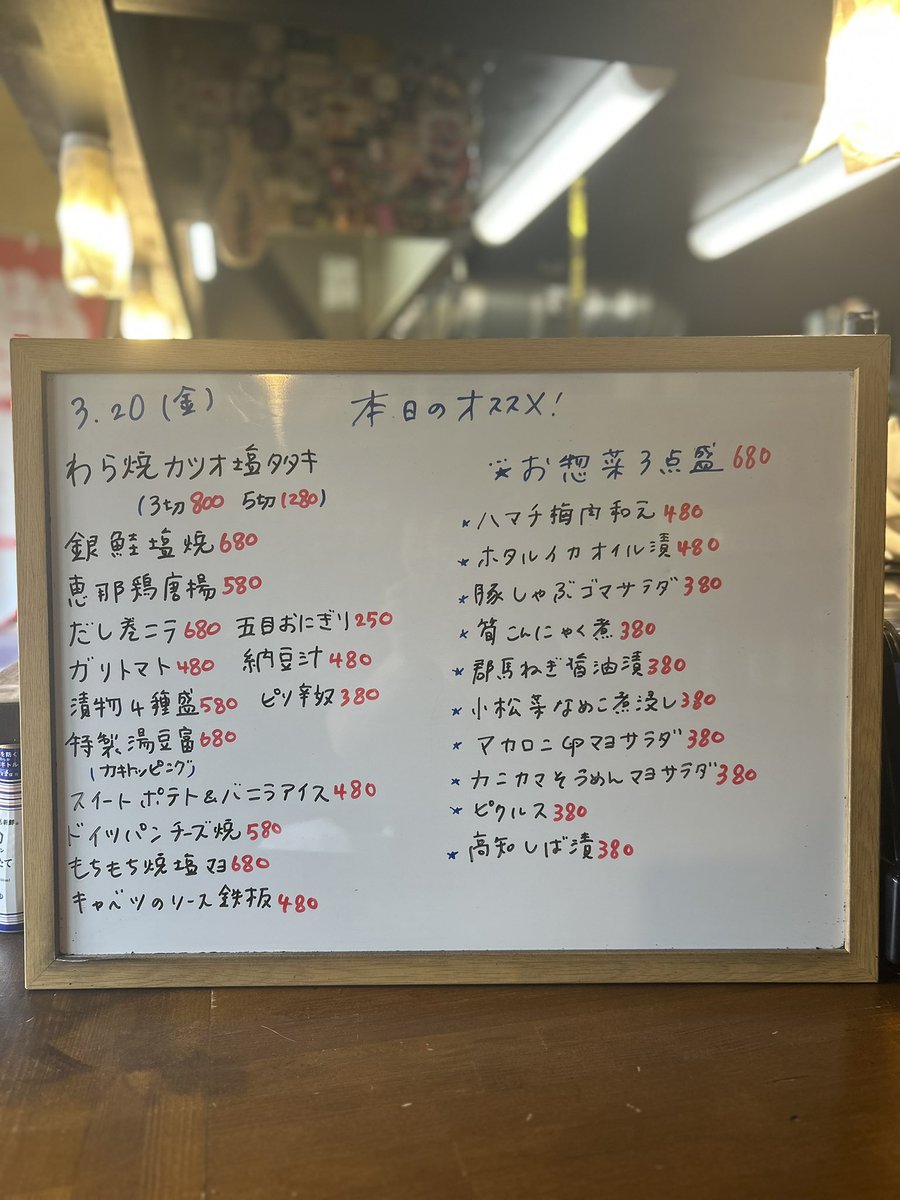 3.20(金)
本日のオススメ!
わら焼カツオ塩タタキ
(3切800 5切1280)
銀鮭塩焼680
恵那鶏唐揚580
だし巻ニラ680 五目おにぎり250
ガリトマト480 納豆汁480
漬物4種盛580 ピリ辛奴380
特製湯豆富680
(カキトッピング)
スイートポテト&バニラアイス480
ドイツパンチーズ焼580
もちもち焼塩マヨ680
キャベツのソース鉄板480
★お惣菜3点盛680
★ハマチ梅肉和え480
★ホタルイカオイル漬480
★豚しゃぶゴマサラダ380
★筍こんにゃく煮380
★群馬ねぎ醤油漬380
★小松菜なめこ煮浸し380
★マカロニ卵マヨサラダ380
★カニカマそうめんマヨサラダ380
★ピクルス380
★高知しば漬380